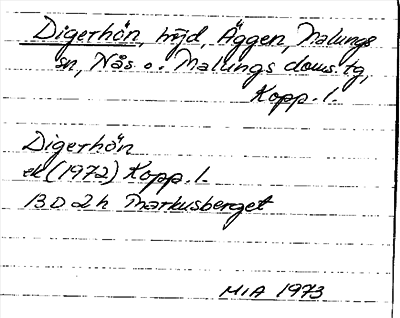 Digerhön, höjd, Äggen, Malungs
sn, Nås o. Malungs doms. tg,
Kopp. l.
Digerhön
ek (1972) Kopp. l.
13D2h Markusberget
MIA 1973